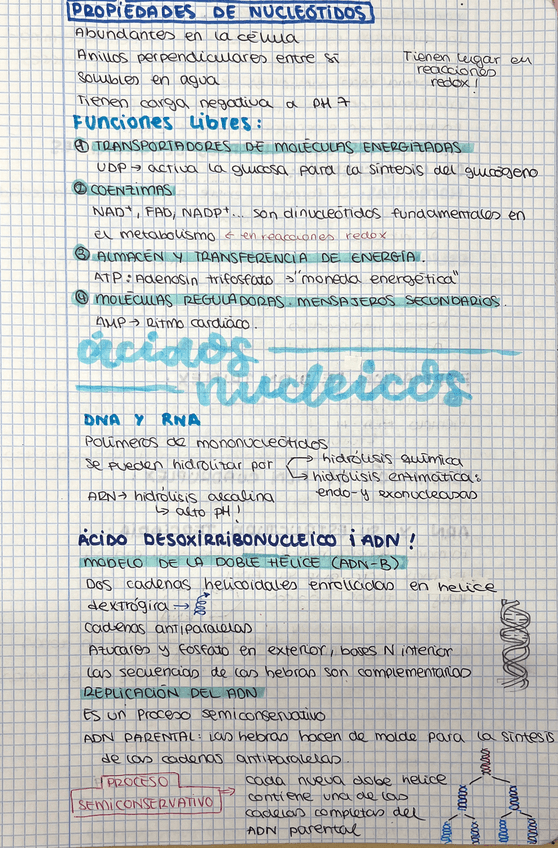 PROPIEDADES DE NUCLEÓTIDOS
Abundantes en la célula
Anillos perpendiculares entre sí
Solubles en agua
Tienen carga negativa a pH 7
Tienen lugar en
reacciones
redox!
Funciones libres:
① TRANSPORTADORES DE MOLÉCULAS ENERGIZADAS
UDP → activa la glucosa para la síntesis del glucógeno
② COENZIMAS
NAD⁺, FAD, NADP⁺... son dinucleótidos fundamentales en
el metabolismo ← en reacciones redox
③ ALMACÉN Y TRANSFERENCIA DE ENERGÍA.
ATP: Adenosin trifosfato → "moneda energética"
④ MOLÉCULAS REGULADORAS. MENSAJEROS SECUNDARIOS.
AMP → Ritmo cardiaco.
ácidos
nucleicos
DNA Y RNA
Polímeros de mononucleótidos
Se pueden hidrolizar por → hidrólisis química
↳ hidrólisis enzimática:
endo- y exonucleasas
ARN → hidrólisis alcalina
↳ alto pH!
ÁCIDO DESOXIRRIBONUCLEICO ¡ADN!
MODELO DE LA DOBLE HÉLICE (ADN-B)
Dos cadenas helicoidales enrolladas en hélice
dextrógira →
Cadenas antiparalelas
Azúcares y fosfato en exterior, bases N interior
Las secuencias de las hebras son complementarias
REPLICACIÓN DEL ADN
Es un proceso semiconservativo
ADN PARENTAL: las hebras hacen de molde para la síntesis
de las cadenas antiparalelas.
PROCESO
SEMICONSERVATIVO ⇒
cada nueva dobe hélice
contiene una de las
cadelas completas del
ADN parental